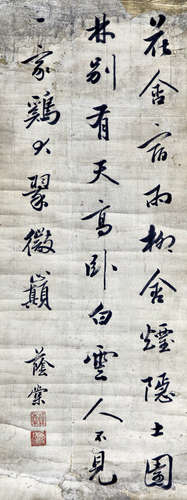 花含宿雨柳含煙隱士園
林別有天高臥白雲人不見
一家鷄犬翠微巔 蔭棠